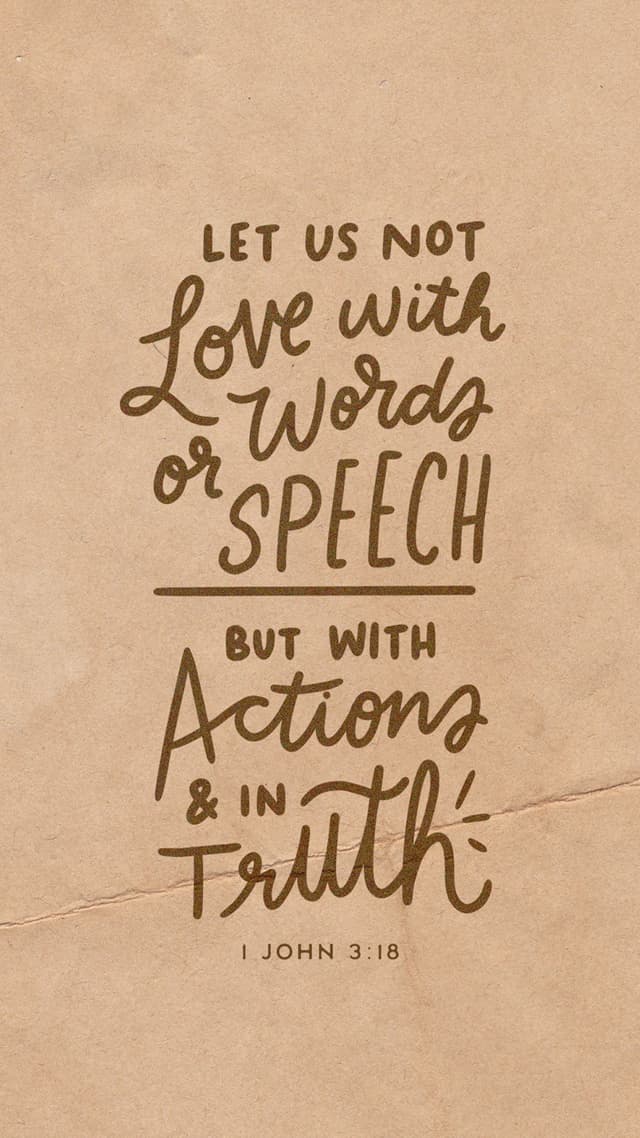 LET US NOT
Love with
Words
or
SPEECH
BUT WITH
Actions
& IN
Truth
1 JOHN 3:18